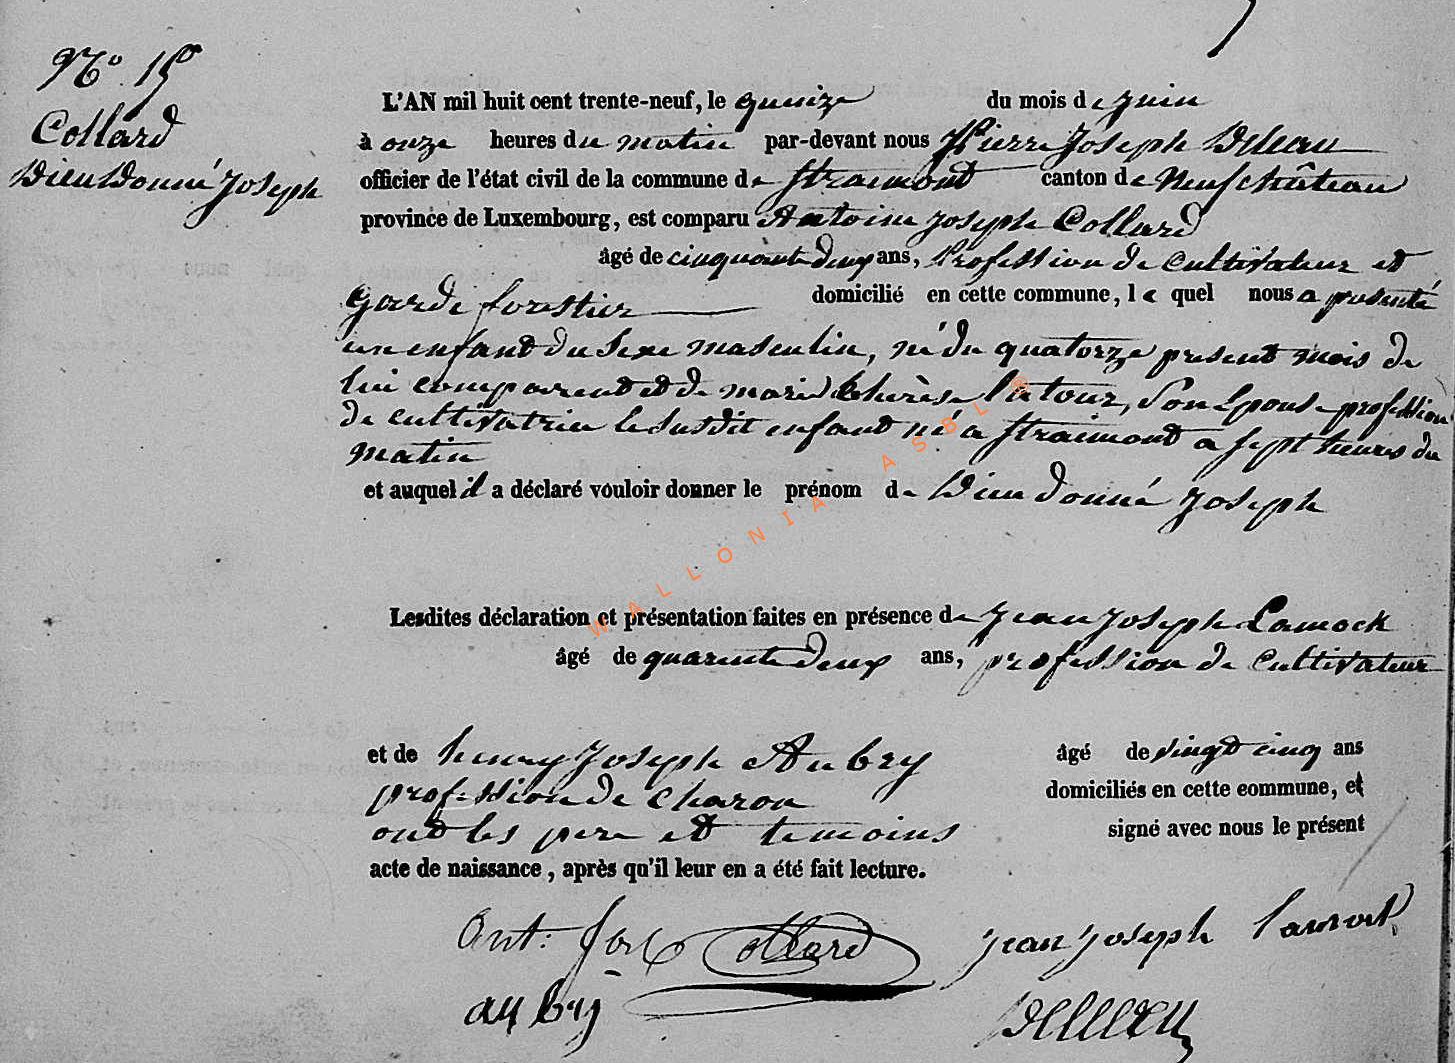 No. 15
Collard
Dieudonné Joseph
L'AN mil huit cent trente-neuf, le quinze du mois de juin
à onze heures du matin par-devant nous Pierre Joseph
officier de l'état civil de la commune de Straimont canton de Neufchâteau
province de Luxembourg, est comparu Antoine Joseph Collard
âgé de cinquante deux ans, profession de cultivateur et
garde forestier domicilié en cette commune, le quel nous a présenté
un enfant du sexe masculin, né du quatorze present mois de
lui comparent et de marie therèse latour, son epouse profession
de cultivatrice le susdit enfant né a straimont a sept heures du
matin
et auquel il a déclaré vouloir donner le prénom de Dieudonné Joseph
WALLONIA ASBL ®
Lesdites déclaration et présentation faites en présence de Jean Joseph Lamock
âgé de quarente deux ans, profession de cultivateur
et de henry Joseph Aubry âgé de vingt cinq ans
profession de charon domiciliés en cette commune, et
ont les pere et temoins signé avec nous le présent
acte de naissance, après qu'il leur en a été fait lecture.
Ant: Jos Collard Jean Joseph
aubry